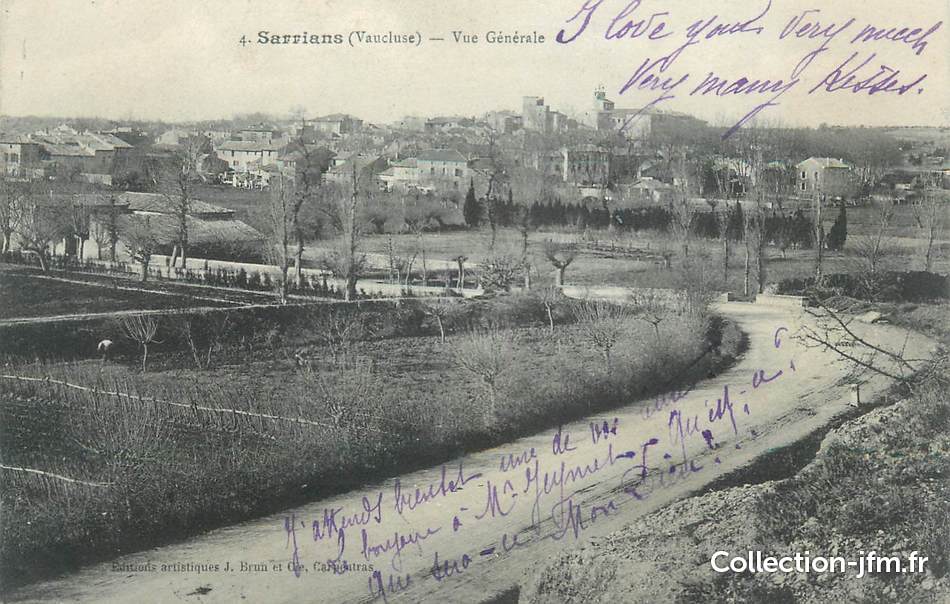 4. Sarrians (Vaucluse) — Vue Générale
I love you Very much
Very many Kisses.
J'attends bientot une de vos
Le bonjour à Mr Qu'est-ce, a,
que sera-ce Mon Dieu!
Editions artistiques J. Brun et Cie, Carpentras
Collection-jfm.fr